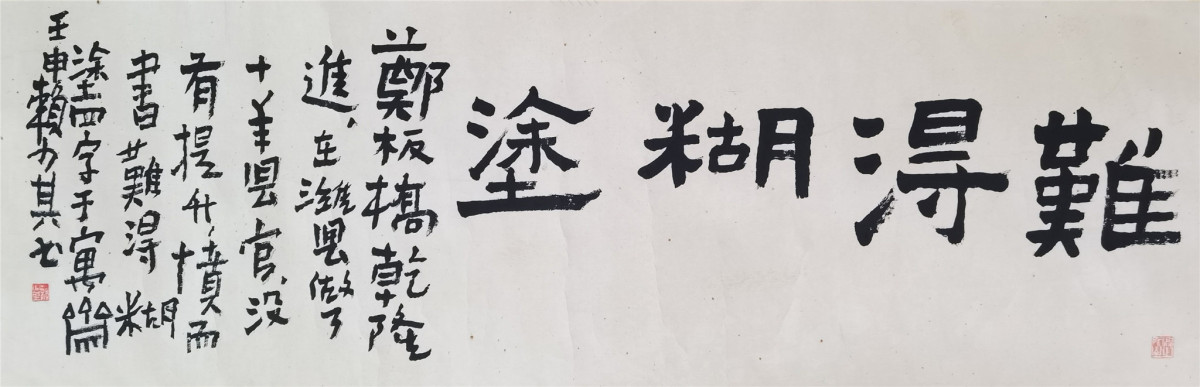 難得糊塗
鄭板橋乾隆
進,在濰縣做了
十年縣官,没
有提升,憤而
書難得糊
塗四字于寓齋
壬申賴少其書